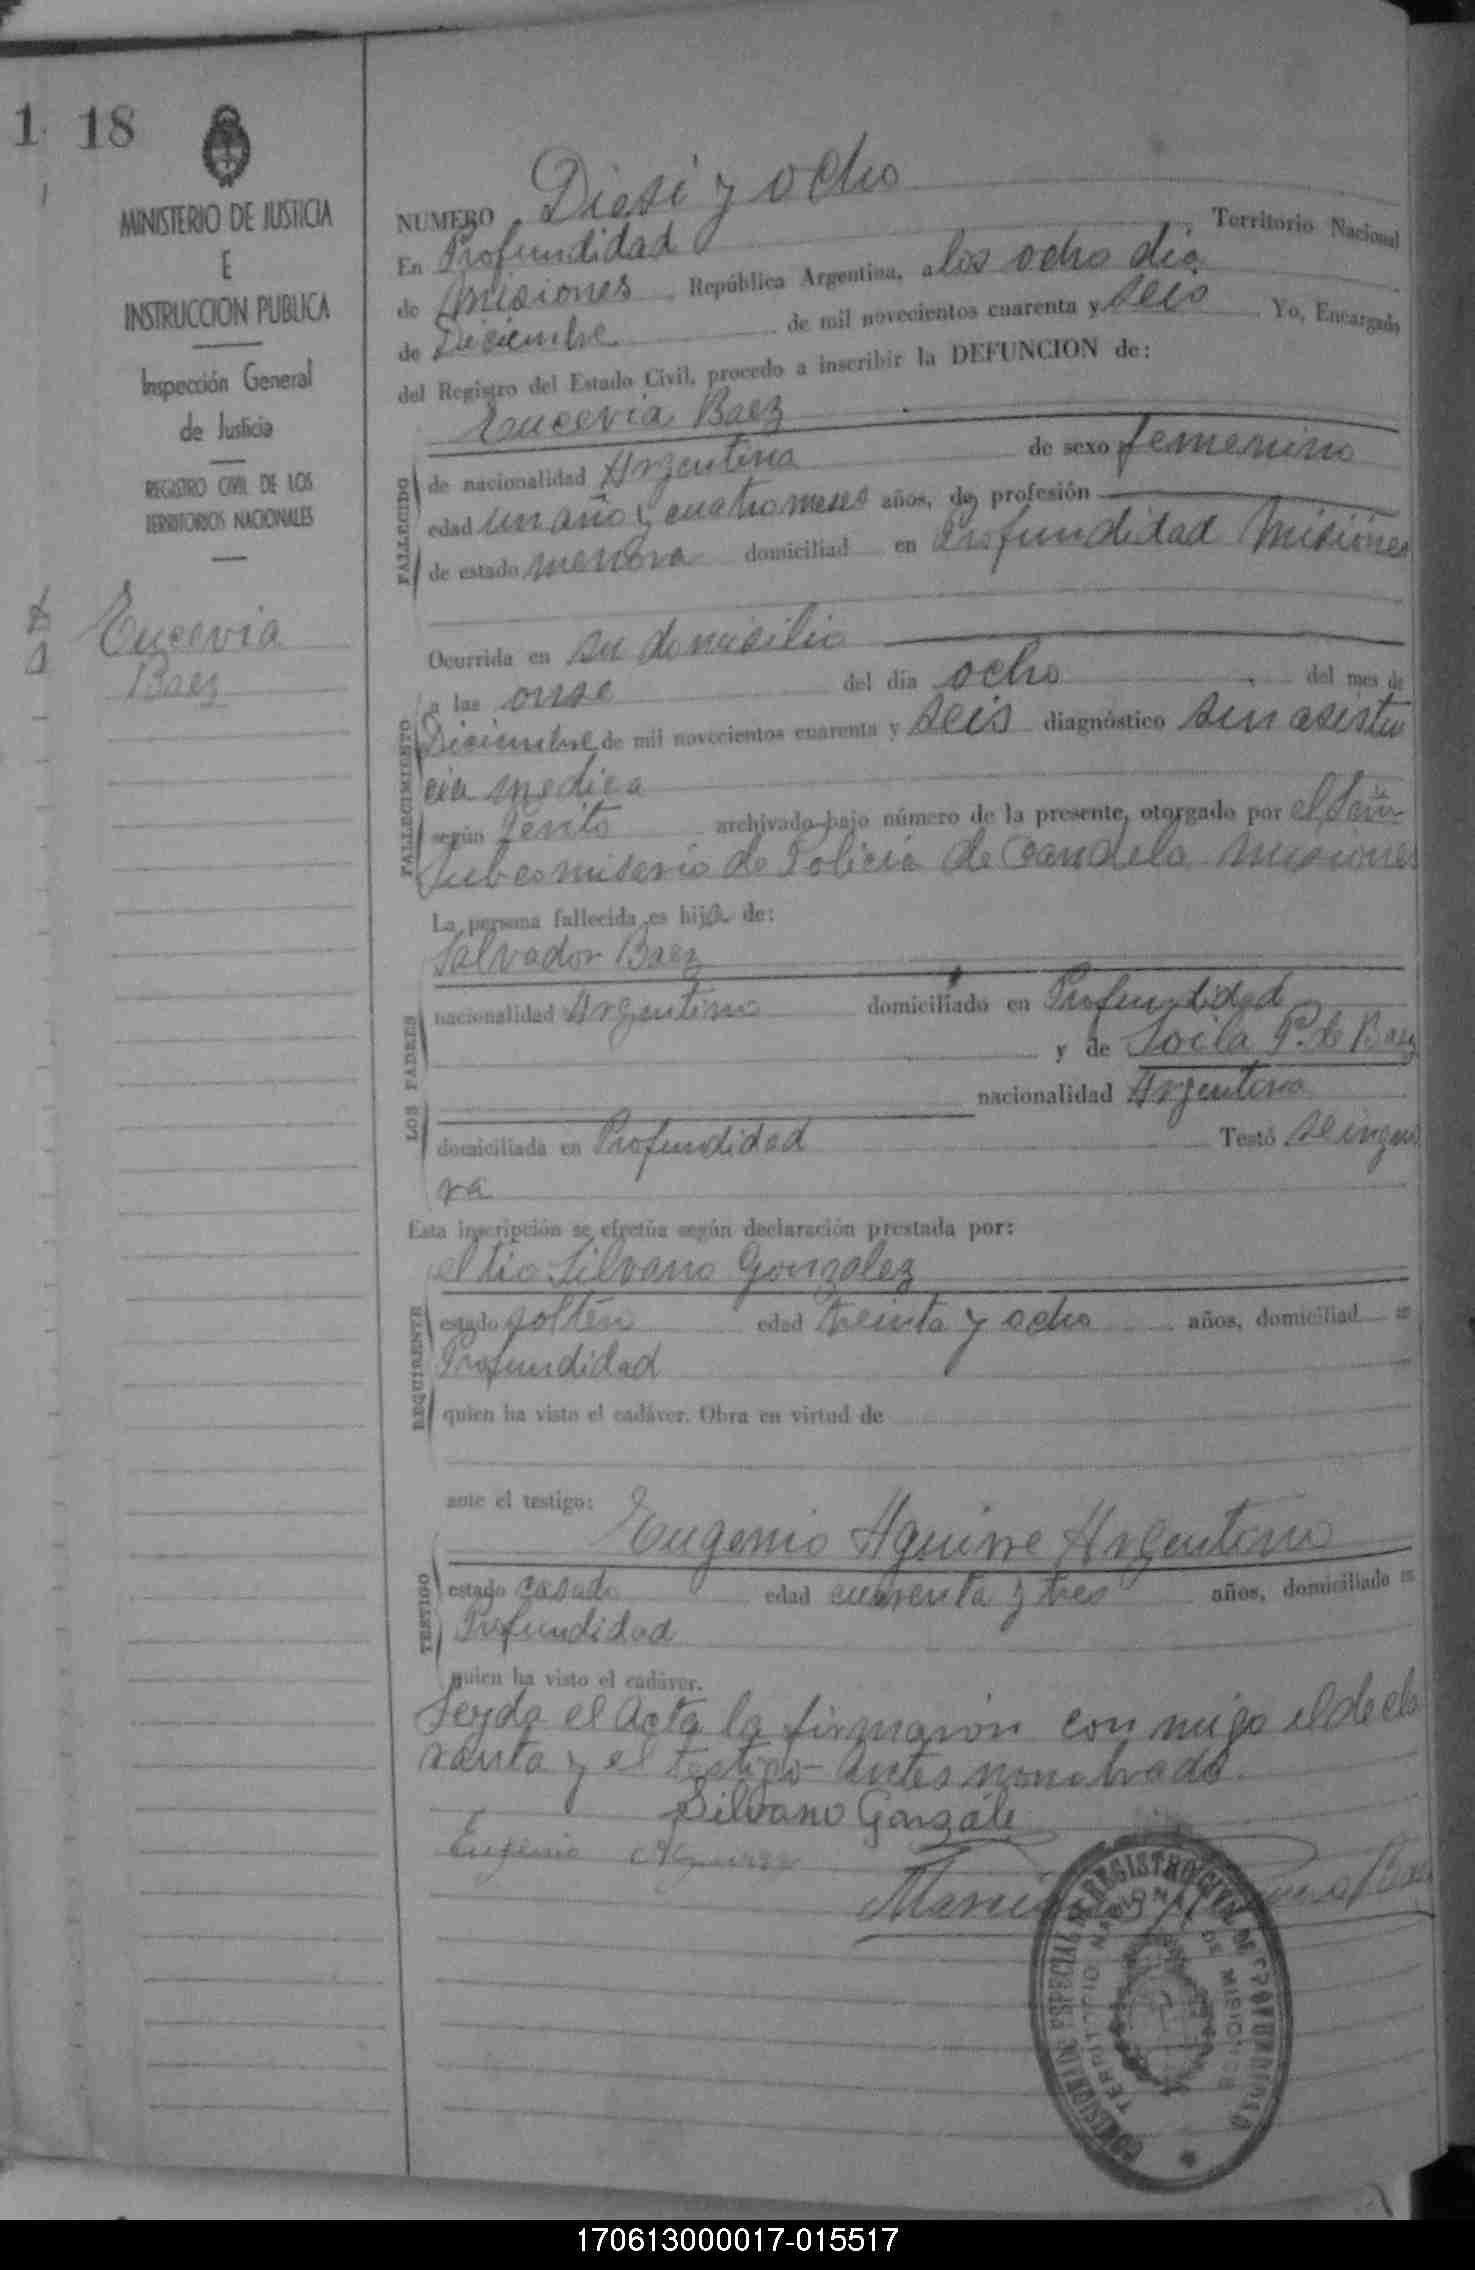 1 18
MINISTERIO DE JUSTICIA
E
INSTRUCCION PUBLICA
Inspección General
de Justicia
REGISTRO CIVIL DE LOS
TERRITORIOS NACIONALES
Eucevia
Baez
NUMERO Diesi y ocho
En Profundidad , Territorio Nacional
de Misiones , República Argentina, a los ocho dia
de Diciembre de mil novecientos cuarenta y seis Yo, Encargado
del Registro del Estado Civil, procedo a inscribir la DEFUNCION de:
Eucevia Baez
FALLECIDO
de nacionalidad Argentina de sexo femenino
edad un año y cuatro meses años, de profesión
de estado menora domiciliad en Profundidad Misiones
Ocurrida en su domisilio
FALLECIMIENTO
a las onse del día ocho del mes de
Diciembre de mil novecientos cuarenta y seis diagnóstico sin asisten
cia medica
según archivado bajo número de la presente, otorgado por el Señor
Subcomisario de Policia de Candela Misiones
La persona fallecida es hija de:
Salvador Baez
LOS PADRES
nacionalidad Argentino domiciliado en Profundidad
y de Soila P. de Baez
nacionalidad Argentina
domiciliada en Profundidad Testó seingno
ra
Esta inscripción se efectúa según declaración prestada por:
el tio Silvano Gonzalez
REQUIRENTE
estado solten edad treinta y ocho años, domiciliad en
Profundidad
quien ha visto el cadáver. Obra en virtud de
ante el testigo:
Eugenio Aguirre Argentino
TESTIGO
estado casado edad cuarenta y tres años, domiciliado en
Profundidad
quien ha visto el cadáver.
Leyda el Acta la firmaron con migo el decla
ranta y el testigo antes nombrado
Silvano Gonzále
Eugenio Aguirre
COMISION ESPECIAL REGISTRO CIVIL DE PROFUNDIDAD
TERRITORIO NACIONAL DE MISIONES
170613000017-015517